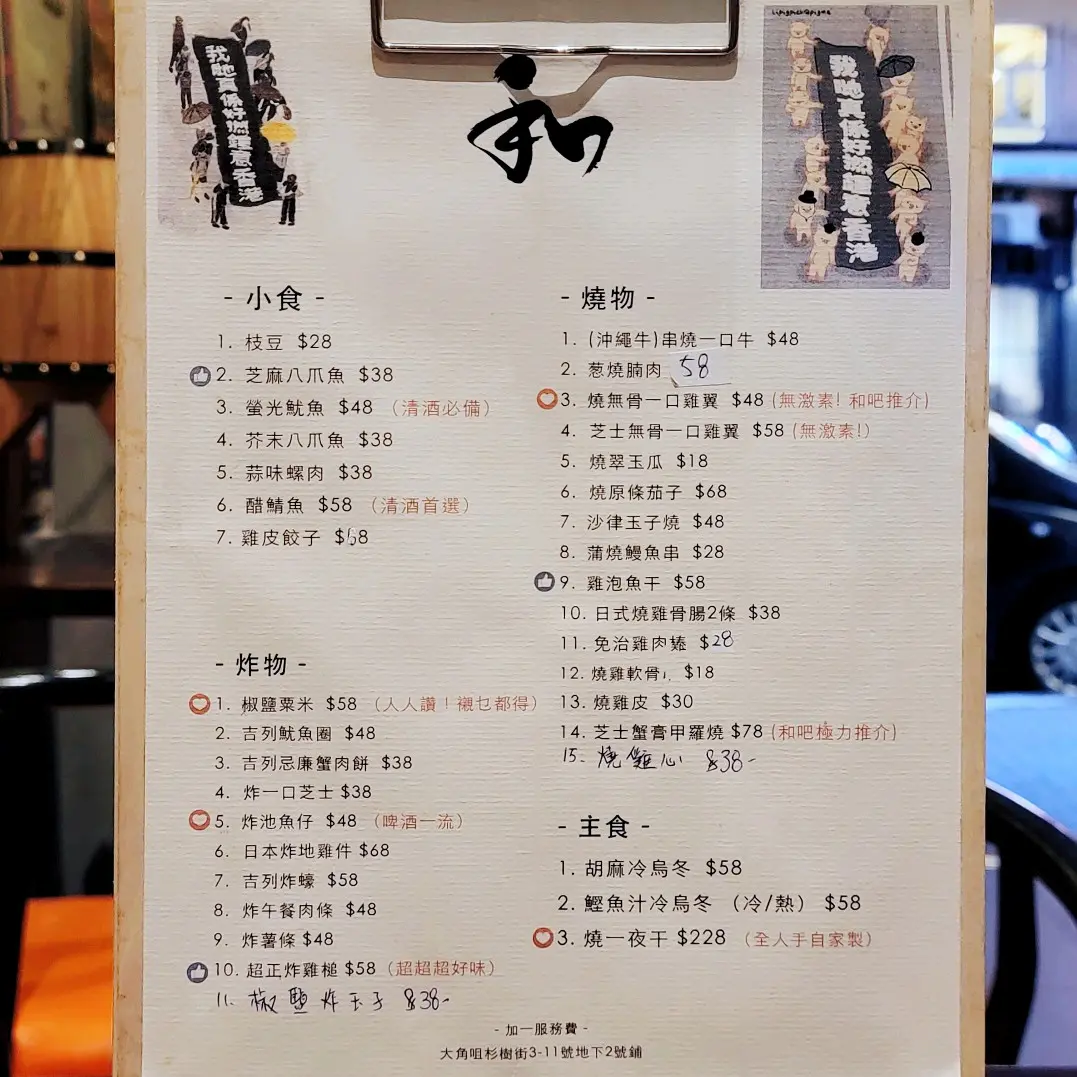 我哋真係好撚鍾意香港
我哋真係好撚鍾意香港
和
- 小食 -
1. 枝豆 $28
2. 芝麻八爪魚 $38
3. 螢光魷魚 $48 （清酒必備）
4. 芥末八爪魚 $38
5. 蒜味螺肉 $38
6. 醋鯖魚 $58 （清酒首選）
7. 雞皮餃子 $58
- 炸物 -
1. 椒鹽粟米 $58 （人人讚！襯乜都得）
2. 吉列魷魚圈 $48
3. 吉列忌廉蟹肉餅 $38
4. 炸一口芝士 $38
5. 炸池魚仔 $48 （啤酒一流）
6. 日本炸地雞件 $68
7. 吉列炸蠔 $58
8. 炸午餐肉條 $48
9. 炸薯條 $48
10. 超正炸雞槌 $58（超超超好味）
11. 椒鹽炸玉子 $38-
- 燒物 -
1. (沖繩牛)串燒一口牛 $48
2. 葱燒腩肉 58
3. 燒無骨一口雞翼 $48 (無激素! 和吧推介)
4. 芝士無骨一口雞翼 $58 (無激素!)
5. 燒翠玉瓜 $18
6. 燒原條茄子 $68
7. 沙律玉子燒 $48
8. 蒲燒鰻魚串 $28
9. 雞泡魚干 $58
10. 日式燒雞骨腸2條 $38
11. 免治雞肉棒 $28
12. 燒雞軟骨 $18
13. 燒雞皮 $30
14. 芝士蟹膏甲羅燒 $78 (和吧極力推介)
15. 燒雞心 $38-
- 主食 -
1. 胡麻冷烏冬 $58
2. 鰹魚汁冷烏冬 （冷/熱） $58
3. 燒一夜干 $228 （全人手自家製）
- 加一服務費 -
大角咀杉樹街3-11號地下2號鋪